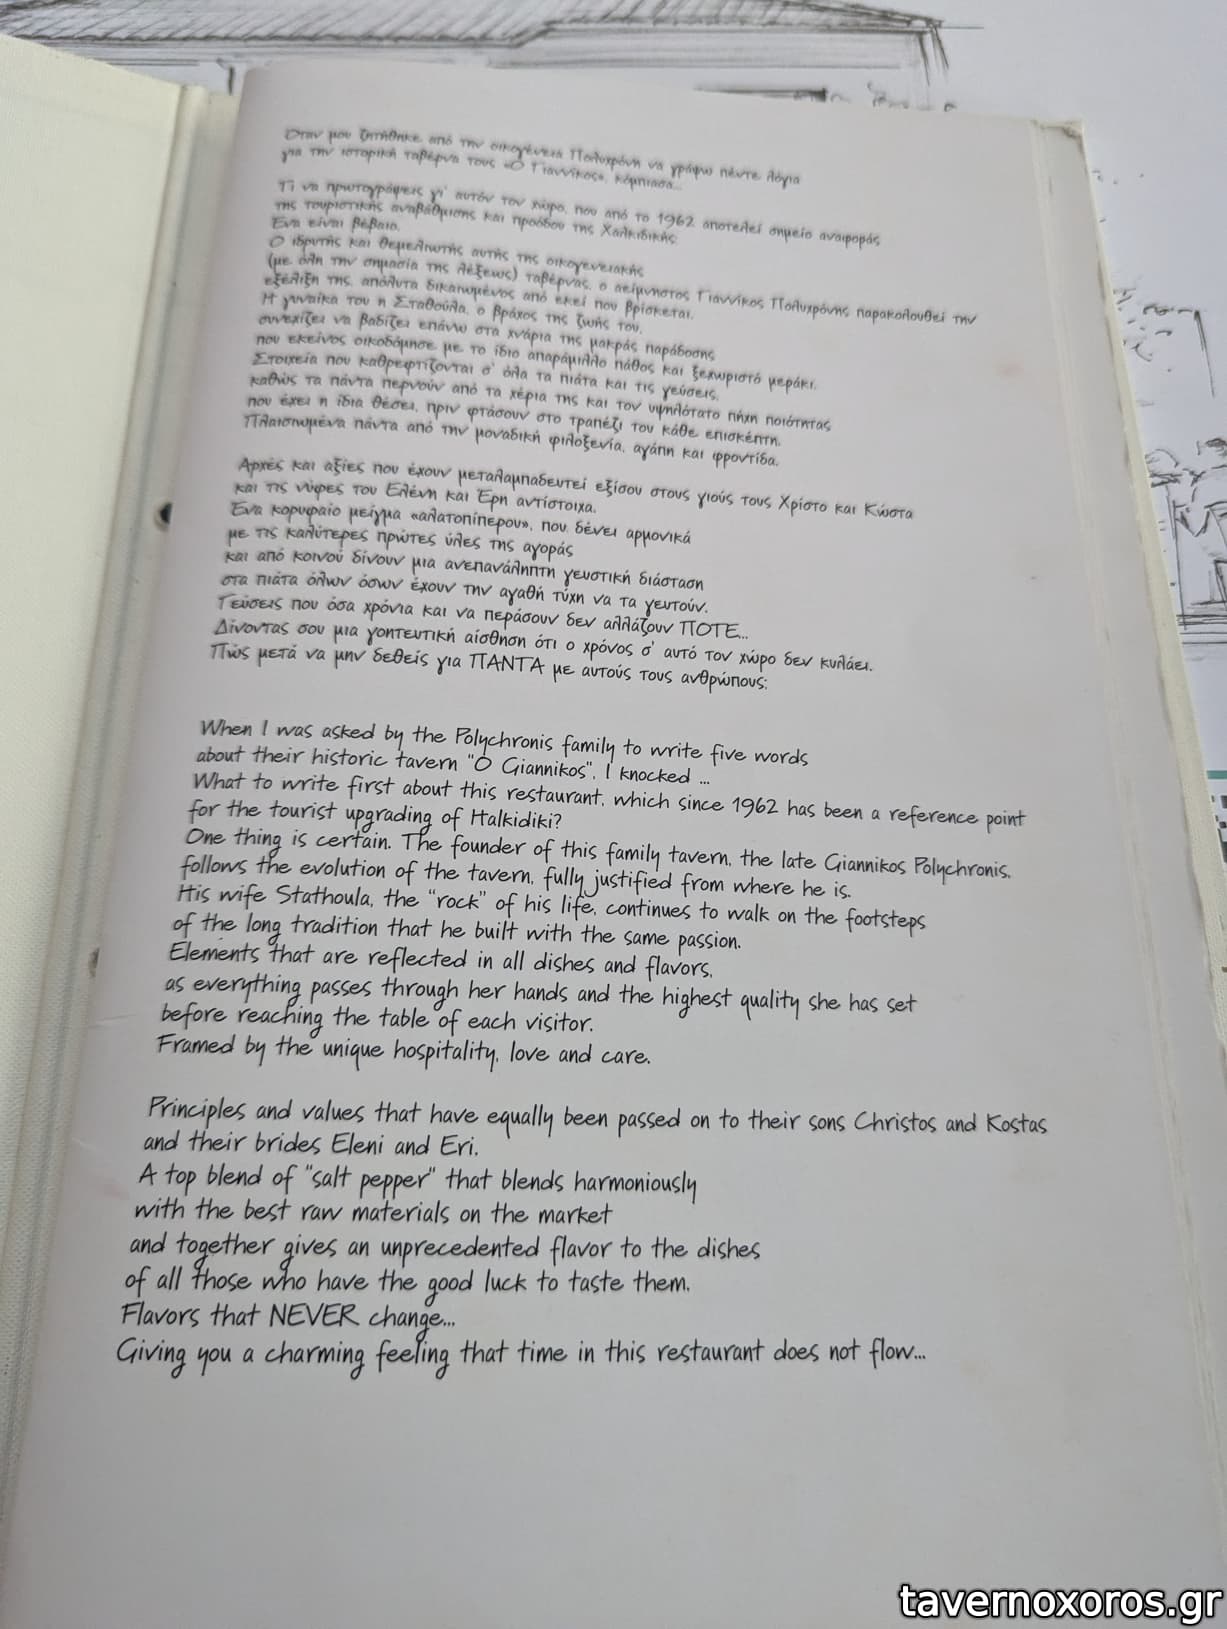 Όταν μου ζητήθηκε από την οικογένεια Πολυχρόνη να γράψω πέντε λόγια
για την ιστορική ταβέρνα τους «Ο Γιαννίκος», κόμπιασα...
Τι να πρωτογράψεις γι' αυτόν τον χώρο, που από το 1962 αποτελεί σημείο αναφοράς
της τουριστικής αναβάθμισης και προόδου της Χαλκιδικής;
Ένα είναι βέβαιο.
Ο ιδρυτής και θεμελιωτής αυτής της οικογενειακής
(με όλη την σημασία της λέξεως) ταβέρνας, ο αείμνηστος Γιαννίκος Πολυχρόνης παρακολουθεί την
εξέλιξη της, απόλυτα δικαιωμένος από εκεί που βρίσκεται.
Η γυναίκα του η Σταθούλα, ο βράχος της ζωής του,
συνεχίζει να βαδίζει επάνω στα χνάρια της μακράς παράδοσης
που εκείνος οικοδόμησε με το ίδιο απαράμιλλο πάθος και ξεχωριστό μεράκι.
Στοιχεία που καθρεφτίζονται σ' όλα τα πιάτα και τις γεύσεις,
καθώς τα πάντα περνούν από τα χέρια της και τον υψηλότατο πήχη ποιότητας
που έχει η ίδια θέσει, πριν φτάσουν στο τραπέζι του κάθε επισκέπτη.
Πλαισιωμένα πάντα από την μοναδική φιλοξενία, αγάπη και φροντίδα.
Αρχές και αξίες που έχουν μεταλαμπαδευτεί εξίσου στους γιούς τους Χρίστο και Κώστα
και τις νύφες του Ελένη και Έρη αντίστοιχα.
Ένα κορυφαίο μείγμα «αλατοπίπερου», που δένει αρμονικά
με τις καλύτερες πρώτες ύλες της αγοράς
και από κοινού δίνουν μια ανεπανάληπτη γευστική διάσταση
στα πιάτα όλων όσων έχουν την αγαθή τύχη να τα γευτούν.
Γεύσεις που όσα χρόνια και να περάσουν δεν αλλάζουν ΠΟΤΕ...
Δίνοντας σου μια γοητευτική αίσθηση ότι ο χρόνος σ' αυτό τον χώρο δεν κυλάει.
Πώς μετά να μην δεθείς για ΠΑΝΤΑ με αυτούς τους ανθρώπους;
When I was asked by the Polychronis family to write five words
about their historic tavern "O Giannikos", I knocked ...
What to write first about this restaurant, which since 1962 has been a reference point
for the tourist upgrading of Halkidiki?
One thing is certain. The founder of this family tavern, the late Giannikos Polychronis,
follows the evolution of the tavern, fully justified from where he is.
His wife Stathoula, the "rock" of his life, continues to walk on the footsteps
of the long tradition that he built with the same passion.
Elements that are reflected in all dishes and flavors,
as everything passes through her hands and the highest quality she has set
before reaching the table of each visitor.
Framed by the unique hospitality, love and care.
Principles and values that have equally been passed on to their sons Christos and Kostas
and their brides Eleni and Eri.
A top blend of "salt pepper" that blends harmoniously
with the best raw materials on the market
and together gives an unprecedented flavor to the dishes
of all those who have the good luck to taste them.
Flavors that NEVER change...
Giving you a charming feeling that time in this restaurant does not flow...
tavernoxoros.gr